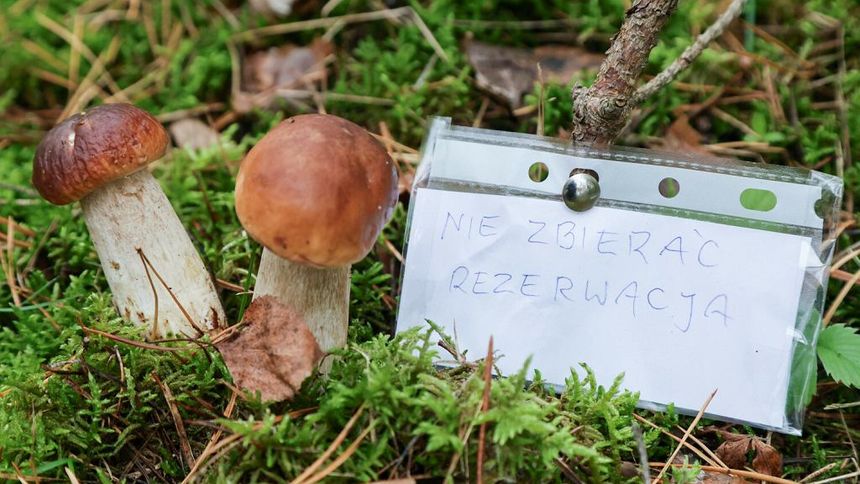 NIE ZBIERAĆ
REZERWACJA